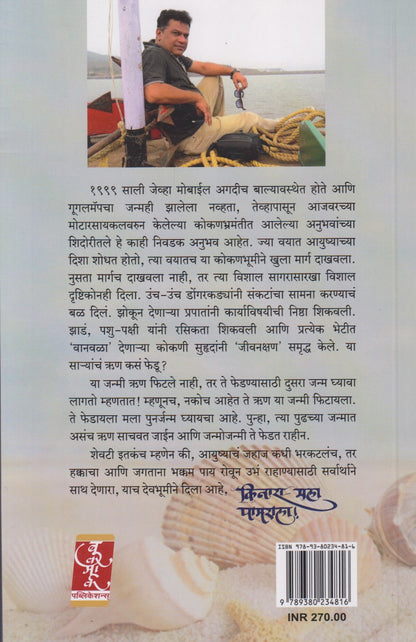 १९९९ साली जेव्हा मोबाईल अगदीच बाल्यावस्थेत होते आणि
गूगलमॅपचा जन्मही झालेला नव्हता, तेव्हापासून आजवरच्या
मोटारसायकलवरुन केलेल्या कोकणभ्रमंतीत आलेल्या अनुभवांच्या
शिदोरीतले हे काही निवडक अनुभव आहेत. ज्या वयात आयुष्याच्या
दिशा शोधत होतो, त्या वयातच या कोकणभूमीने खुला मार्ग दाखवला.
नुसता मार्गच दाखवला नाही, तर त्या विशाल सागरासारखा विशाल
दृष्टिकोनही दिला. उंच-उंच डोंगरकड्यांनी संकटांचा सामना करण्याचं
बळ दिलं. झोकून देणाऱ्या प्रपातांनी कार्याविषयीची निष्ठा शिकवली.
झाडं, पशु-पक्षी यांनी रसिकता शिकवली आणि प्रत्येक भेटीत
'वानवळा' देणाऱ्या कोकणी सुहृदांनी 'जीवनक्षण' समृद्ध केले. या
साऱ्यांचं ऋण कसं फेडू?
या जन्मी ऋण फिटले नाही, तर ते फेडण्यासाठी दुसरा जन्म घ्यावा
लागतो म्हणतात! म्हणूनच, नकोच आहेत ते ऋण या जन्मी फिटायला.
ते फेडायला मला पुनर्जन्म घ्यायचा आहे. पुन्हा, त्या पुढच्या जन्मात
असंच ऋण साचवत जाईन आणि जन्मोजन्मी ते फेडत राहीन.
शेवटी इतकंच म्हणेन की, आयुष्याचं जहाज कधी भरकटलंच, तर
हक्काचा आणि जगताना भक्कम पाय रोवून उभं राहाण्यासाठी सर्वार्थाने
साथ देणारा, याच देवभूमीने दिला आहे, किनारा मला
पामराला!
बुकमार्क
पब्लिकेशन्स
ISBN 978-93-80234-81-6
9 789380 234816
INR 270.00